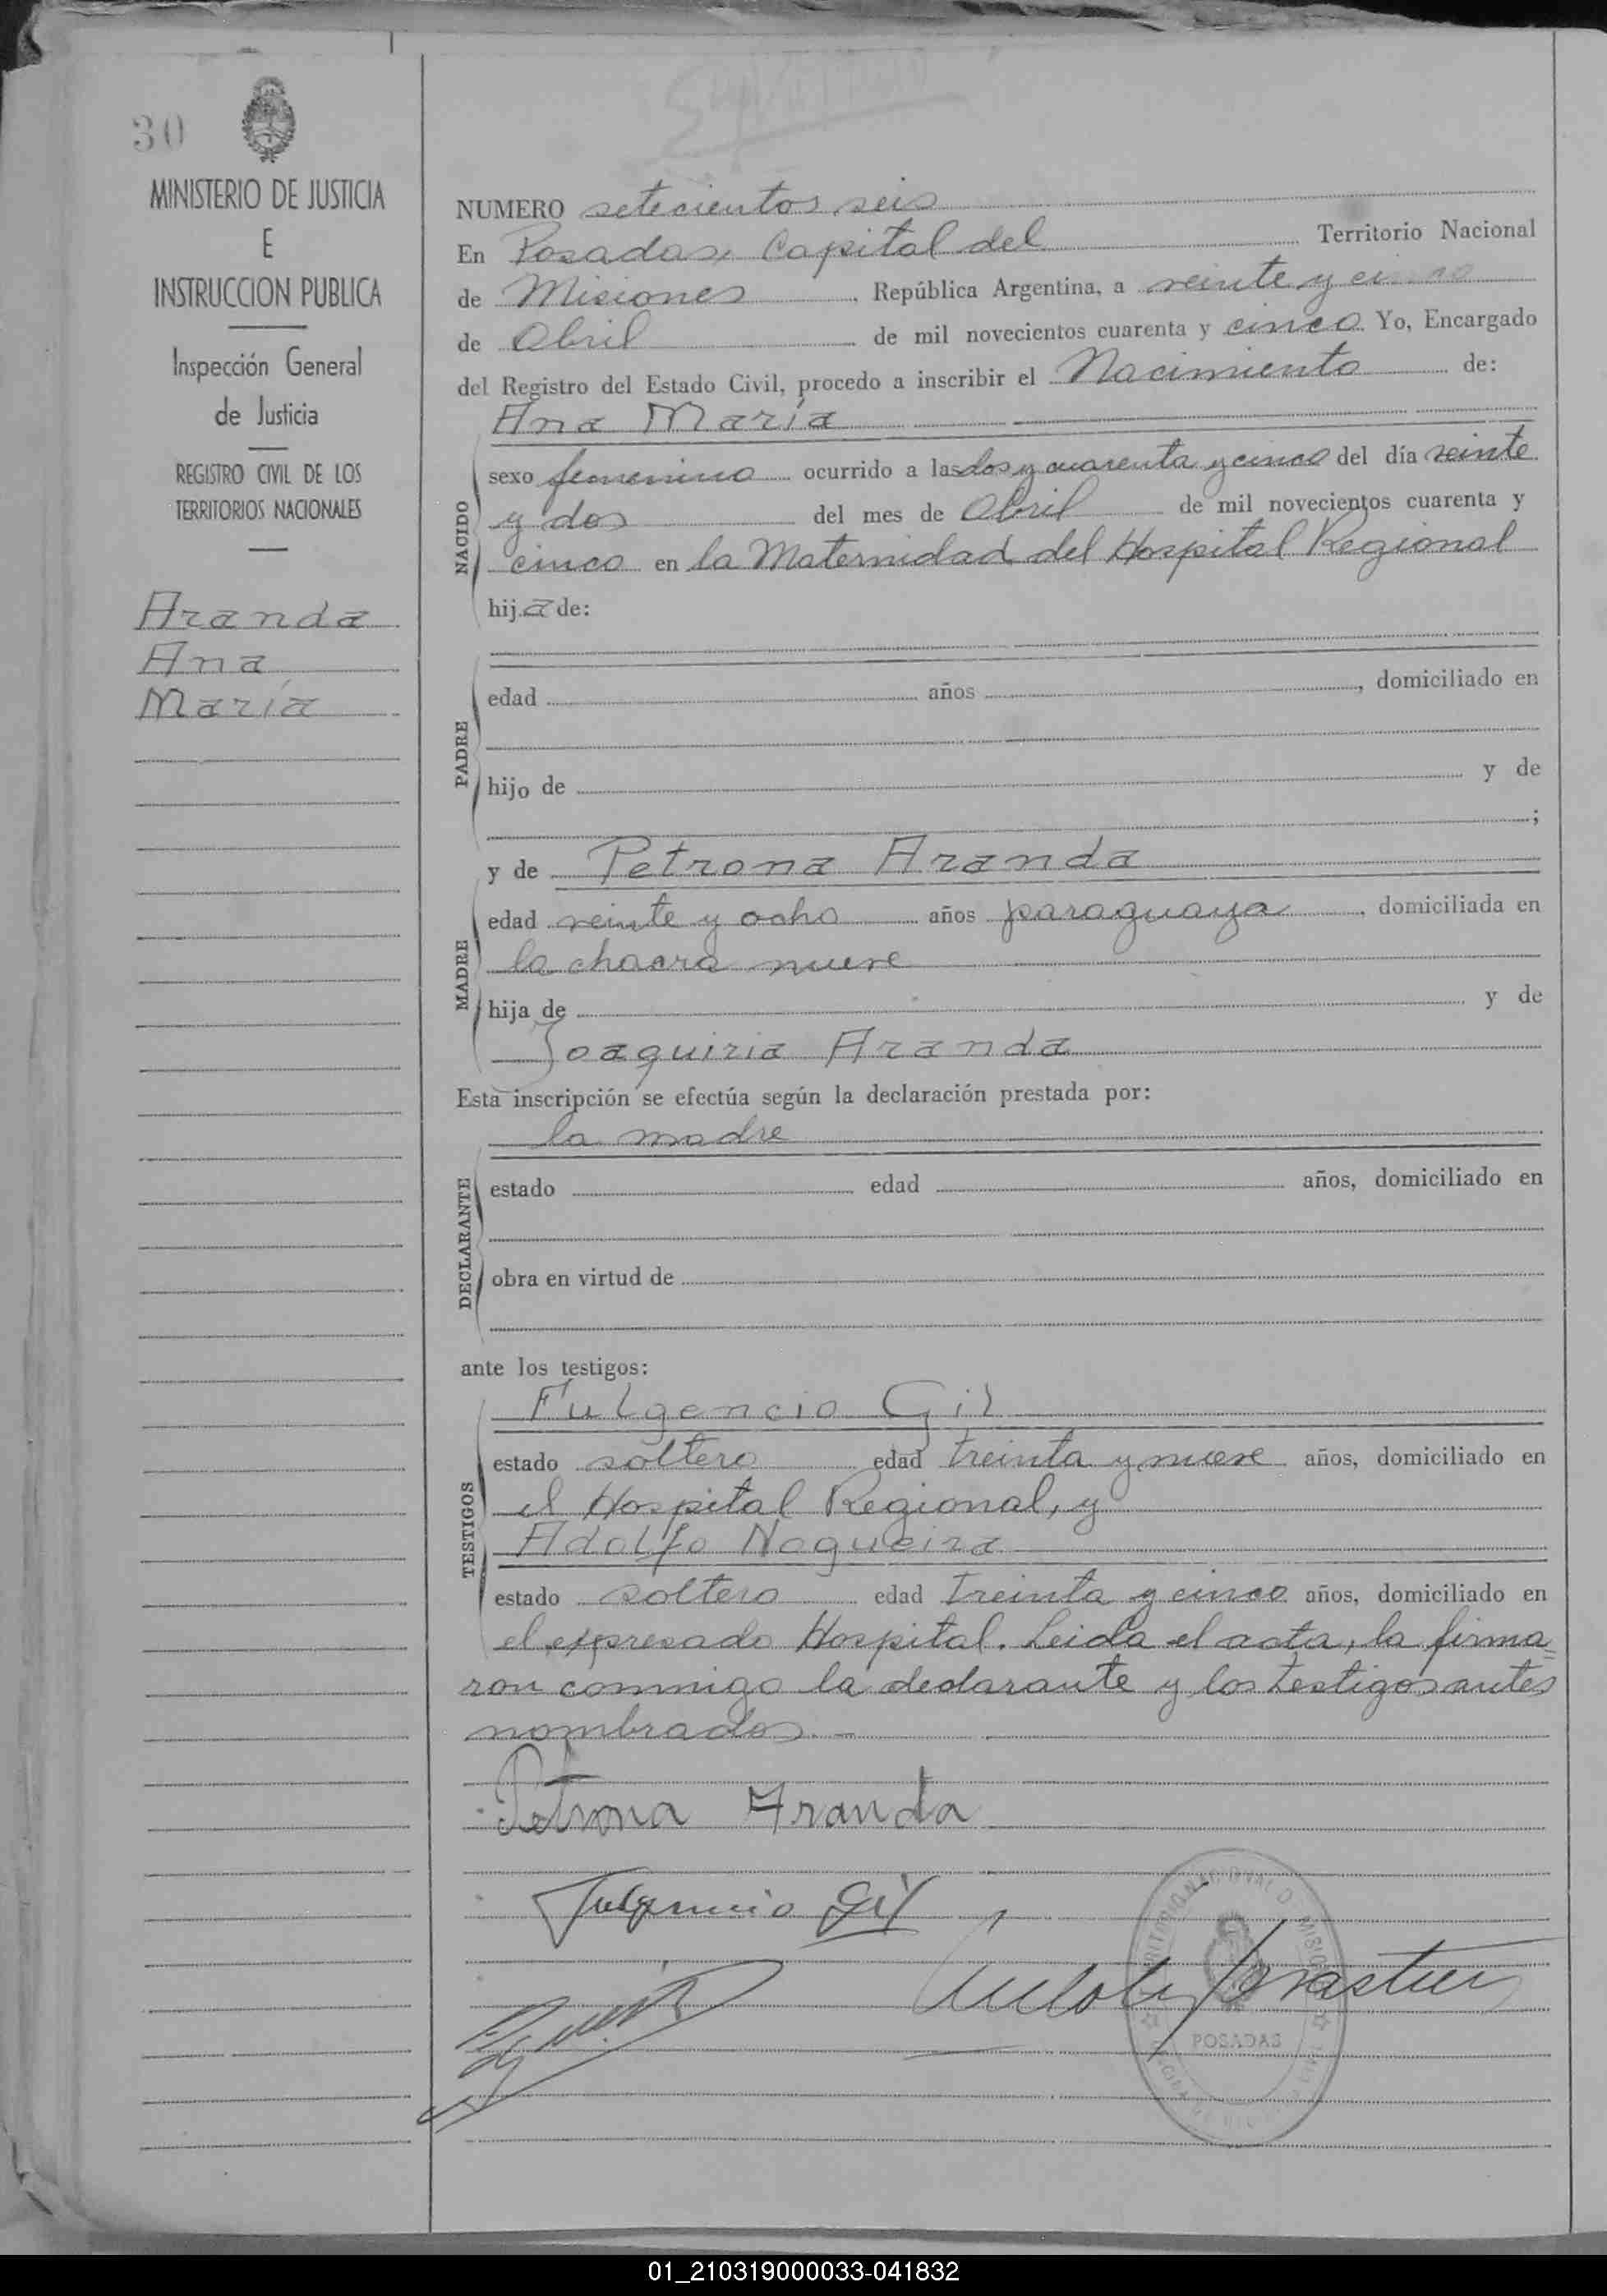 30
MINISTERIO DE JUSTICIA
E
INSTRUCCION PUBLICA
Inspección General
de Justicia
REGISTRO CIVIL DE LOS
TERRITORIOS NACIONALES
Aranda
Ana
María
NUMERO setecientos seis
En Posadas, Capital del Territorio Nacional
de Misiones, República Argentina, a veinte y cinco
de Abril de mil novecientos cuarenta y cinco Yo, Encargado
del Registro del Estado Civil, procedo a inscribir el Nacimiento de:
Ana María
NACIDO
sexo femenino ocurrido a las dos y cuarenta y cinco del día veinte
y dos del mes de Abril de mil novecientos cuarenta y
cinco en la Maternidad del Hospital Regional
hija de:
PADRE
edad años, domiciliado en
hijo de y de
;
MADRE
y de Petrona Aranda
edad veinte y ocho años paraguaya, domiciliada en
la chacra nueve
hija de y de
Joaquiria Aranda
Esta inscripción se efectúa según la declaración prestada por:
la madre
DECLARANTE
estado edad años, domiciliado en
obra en virtud de
ante los testigos:
TESTIGOS
Fulgencio Gil
estado soltero edad treinta y nueve años, domiciliado en
el Hospital Regional, y
Adolfo Nogueira
estado soltero edad treinta y cinco años, domiciliado en
el expresado Hospital. Leida el acta, la firma=
ron conmigo la declarante y los testigos antes
nombrados.-
Petrona Aranda
Fulgencio Gil
POSADAS
01_210319000033-041832